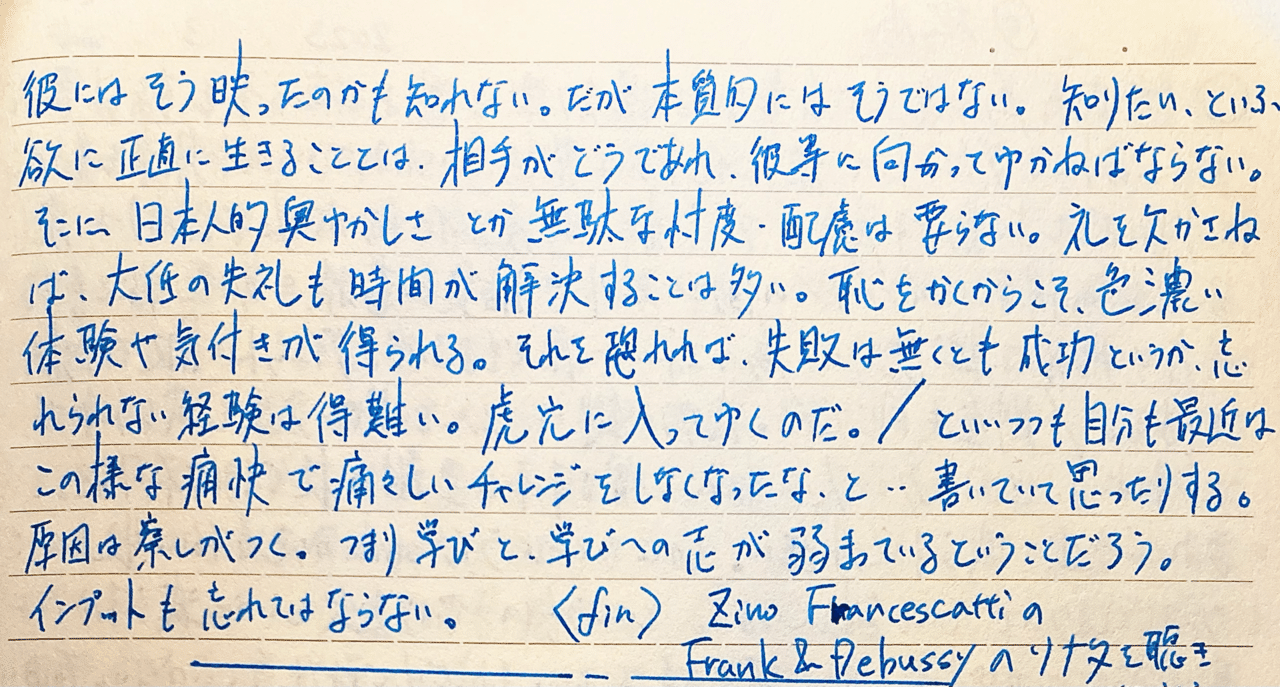 彼にはそう映ったのかも知れない。だが本質的にはそうではない。知りたい、といふ
欲に正直に生きることとは、相手がどうであれ、彼等に向かってゆかねばならない。
そこに、日本人的奥ゆかしさとか無駄な忖度・配慮は要らない。礼を欠かさね
ば、大低の失礼も時間が解決することは多い。恥をかくからこそ、色濃い
体験や気付きが得られる。それを恐れれば、失敗は無くとも成功というか、忘
れられない経験は得難い。虎穴に入ってゆくのだ。/といいつつも自分も最近は
この様な痛快で痛々しいチャレンジをしなくなったな、と‥書いていて思ったりする。
原因は察しがつく。つまり学びと、学びへの志が弱まっているということだろう。
インプットも忘れてはならない。 〈fin〉 Zino Francescattiの
Frank & Debussyのソナタを聴き